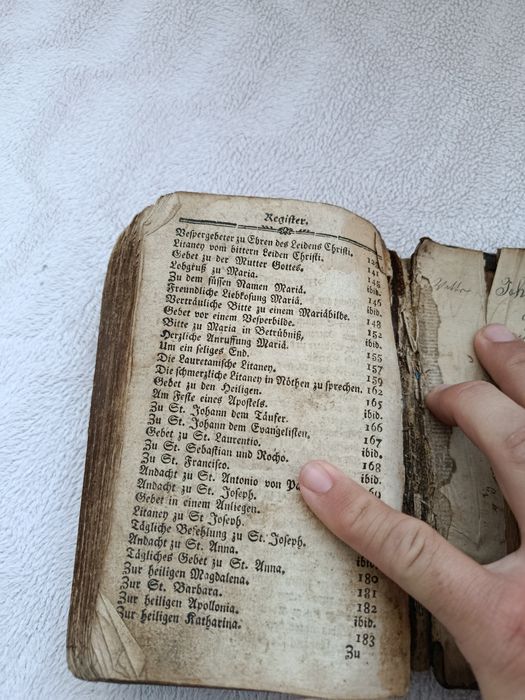 Register.
Vespergebeter zu Ehren des Leidens Christi.
Litaney vom bittern Leiden Christi. 141
Gebet zu der Mutter Gottes. 145
Lobgruß zu Maria. ibid.
Zu dem süssen Namen Mariä. 146
Freundliche Liebkosung Mariä. ibid.
Verträuliche Bitte zu einem Mariäbilde. 148
Gebet vor einem Vesperbilde. 152
Bitte zu Maria in Betrübniß. ibid.
Herzliche Anruffung Mariä. 155
Um ein seliges End. 157
Die Lauretanische Litaney. 159
Die schmerzliche Litaney in Nöthen zu sprechen. 162
Gebet zu den Heiligen. 165
Am Feste eines Apostels. ibid.
Zu St. Johann dem Täufer. 166
Zu St. Johann dem Evangelisten. 167
Gebet zu St. Laurentio. ibid.
Zu St. Sebastian und Rocho. 168
Zu St. Francisco. ibid.
Andacht zu St. Antonio von
Andacht zu St. Joseph.
Gebet in einem Anliegen.
Litaney zu St Joseph.
Tägliche Befehlung zu St. Joseph.
Andacht zu St. Anna. ibid.
Tägliches Gebet zu St. Anna. 180
Zur heiligen Magdalena. 181
Zur St. Barbara. 182
Zur heiligen Apollonia. ibid.
Zur heiligen Katharina. 183
Zu